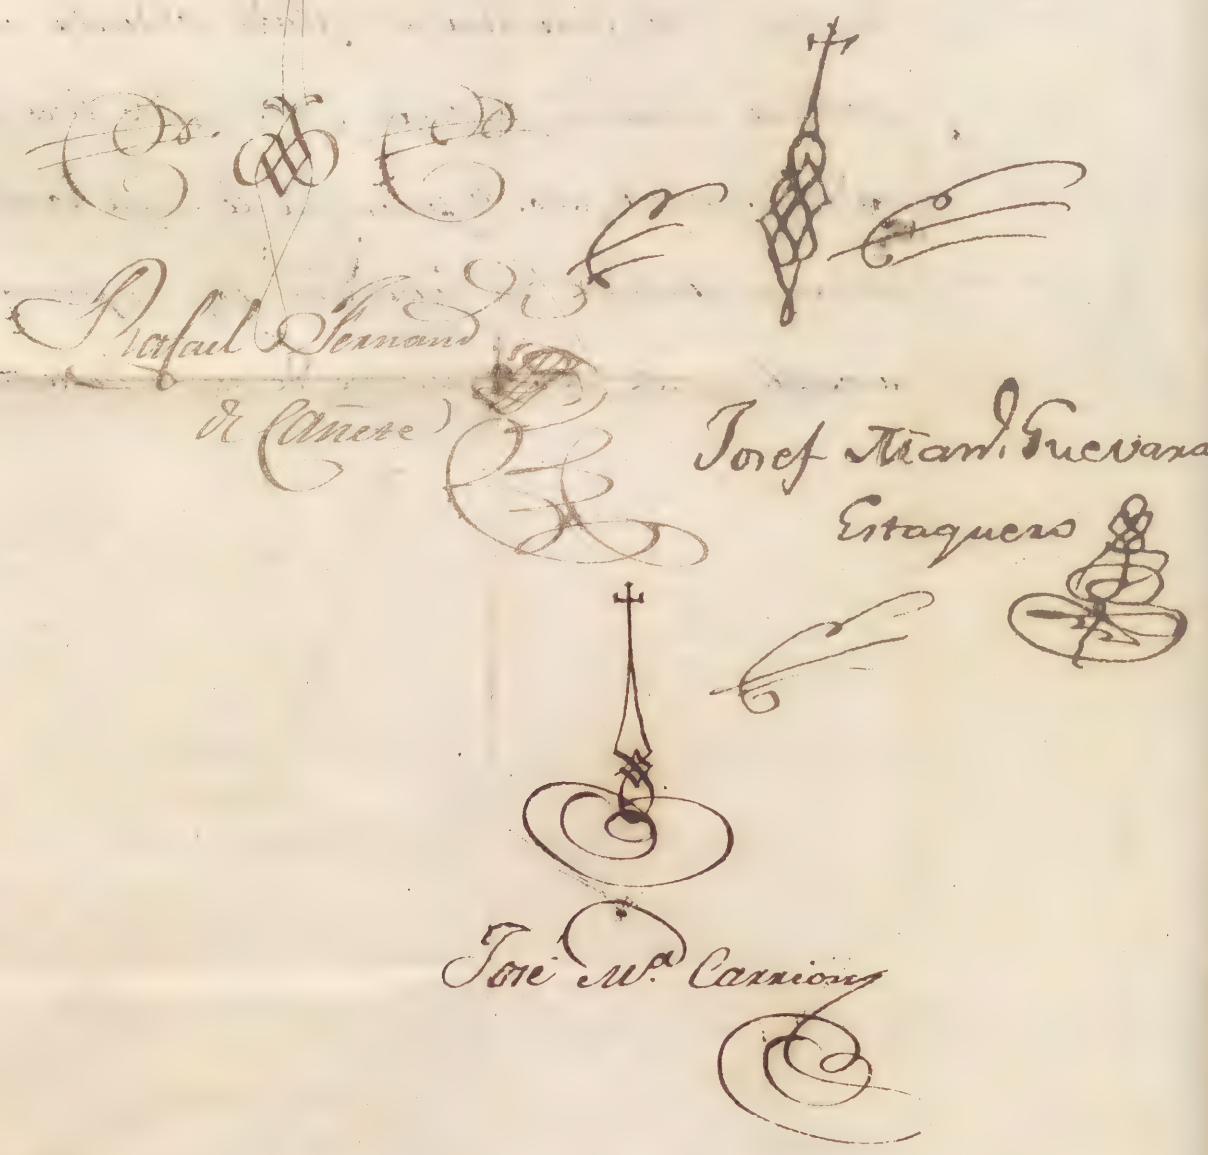 Rafael Fernand
de Cañete
Josef Man.l Guevara
Estaquero
José M.a Carrion